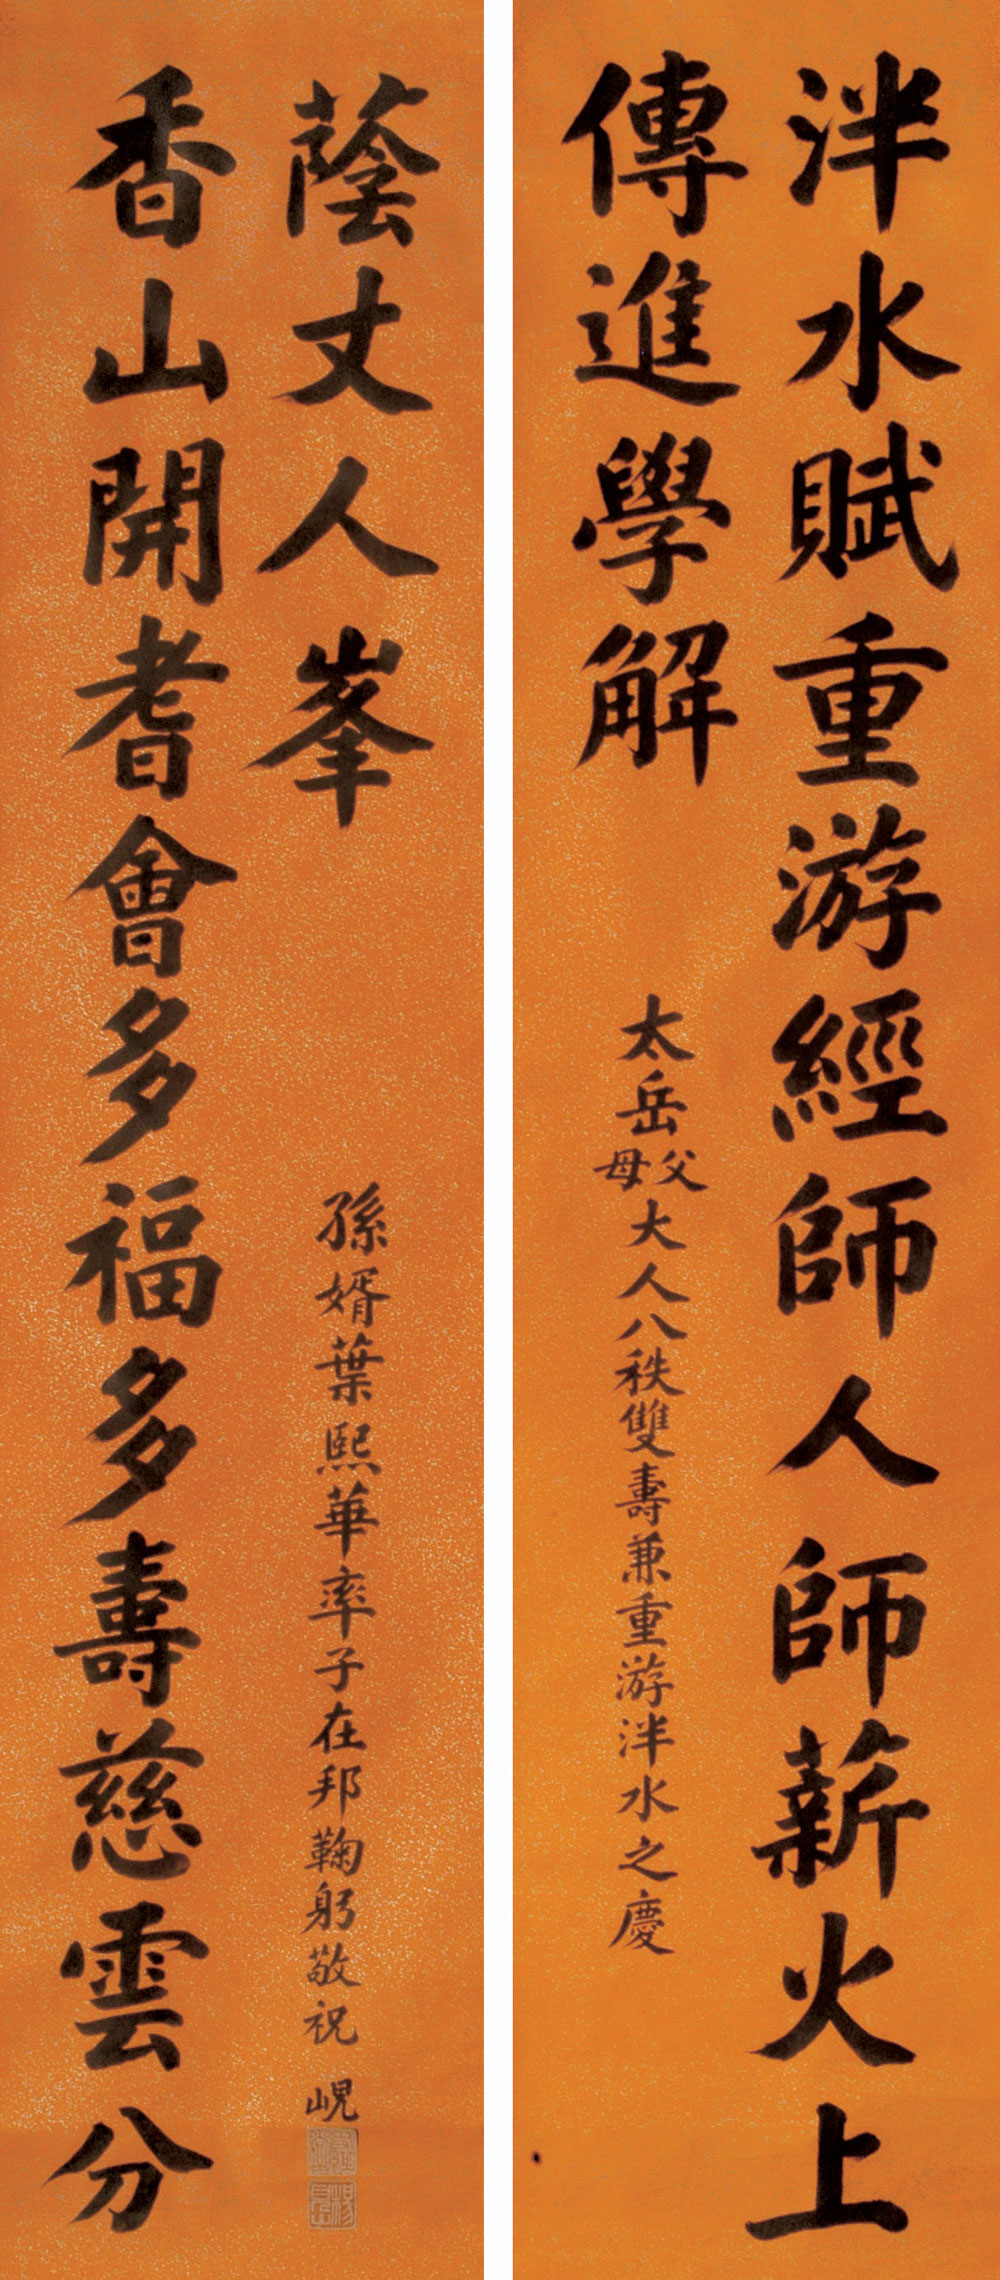 泮水賦重游經師人師薪火上
傳進學解
太岳父母大人八秩雙壽兼重游泮水之慶
香山開耆會多福多壽慈雲分
蔭丈人峯
孫婿葉熙華率子在邦鞠躬敬祝
峴